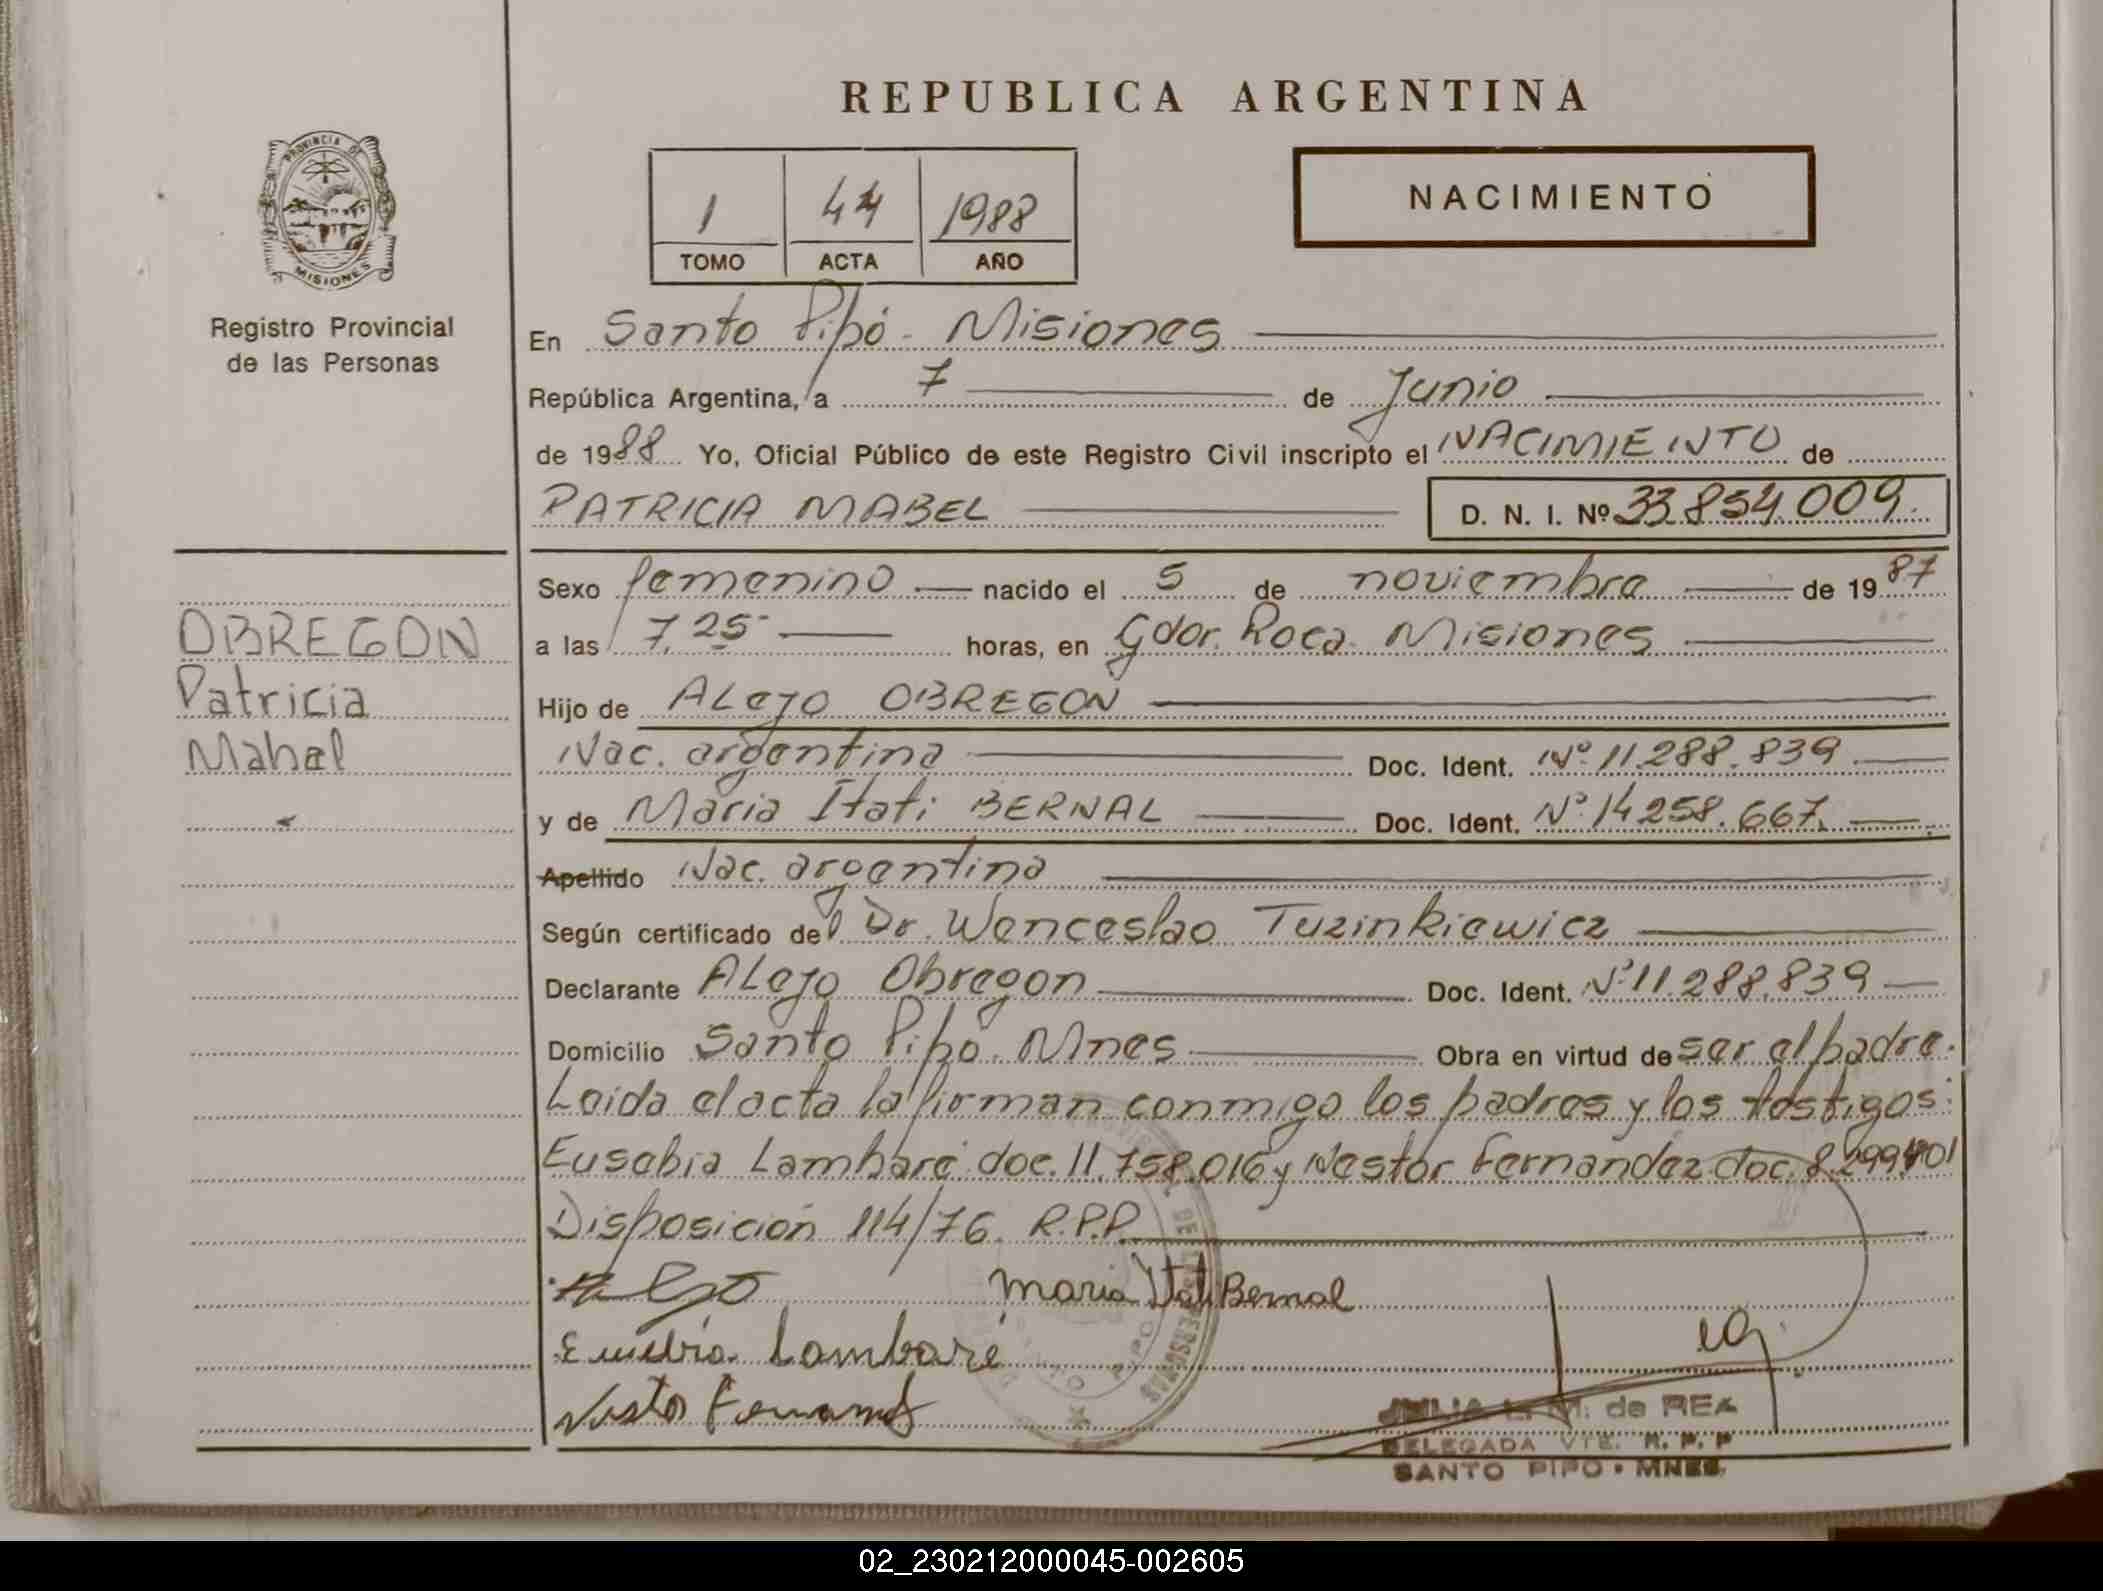 REPUBLICA ARGENTINA
PROVINCIA DE
MISIONES
Registro Provincial
de las Personas
1 44 1988
TOMO ACTA AÑO
NACIMIENTO
En Santo Pipó - Misiones
República Argentina, a 7 de Junio
de 1988 Yo, Oficial Público de este Registro Civil inscripto el NACIMIENTO de
PATRICIA MABEL D. N. I. Nº 33.854.009.
Sexo femenino nacido el 5 de noviembre de 1987
a las 7,25 horas, en Gdor. Roca. Misiones
OBREGON
Patricia
Mabel
Hijo de ALejo OBREGON
Nac. argentina Doc. Ident. Nº 11.288.839
y de Maria Itati BERNAL Doc. Ident. Nº 14.258.667.
Apellido Nac. argentina
Según certificado del Dr. Wenceslao Tuzinkiewicz
Declarante ALejo Obregon Doc. Ident. Nº 11.288.839
Domicilio Santo Pipó. Mnes Obra en virtud de ser el padre.
Leida el acta la firman conmigo los padres y los testigos:
Eusebia Lambaré doc. 11.758.016 y Nestor Fernandez doc. 8.299.401
Disposición 114/76. R.P.P.
Maria Itati Bernal
Eusebia Lambaré
Nestor Fernandez
JULIA L. M. de REA
DELEGADA VTE. R. P. P
SANTO PIPO • MNES.
02_230212000045-002605